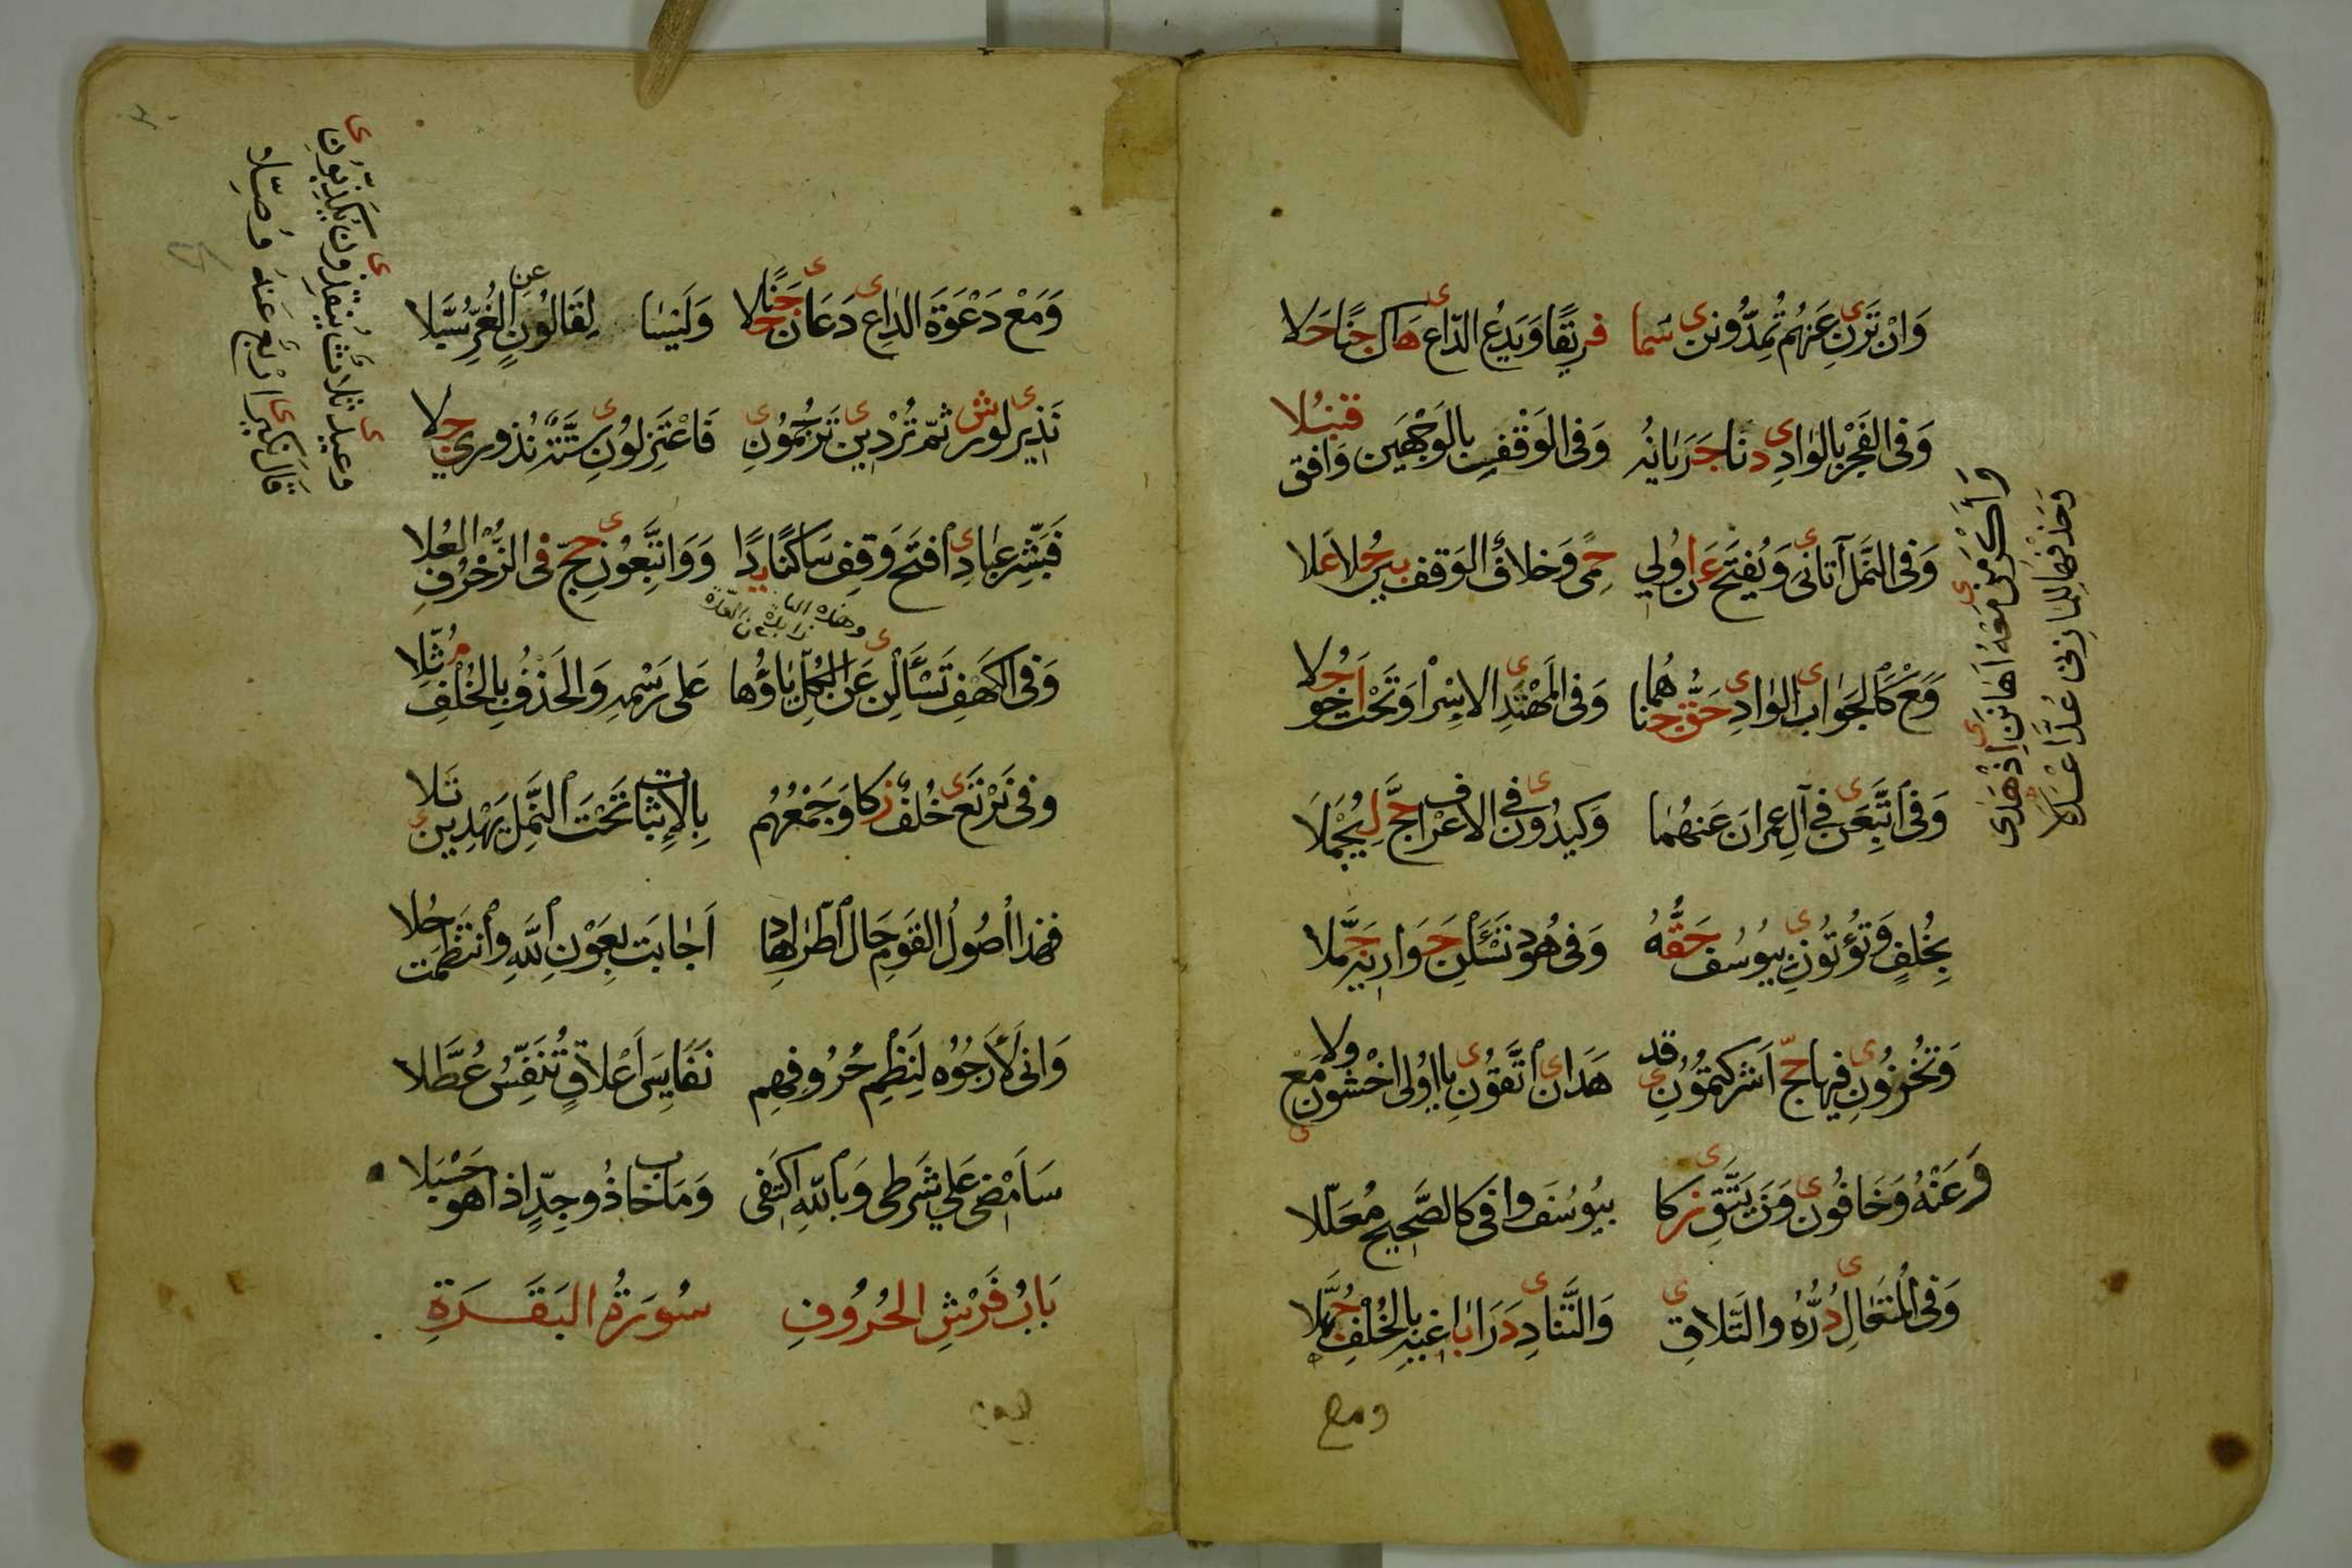 وَاِنْ تَرَنِ عَنْهُمْ تُمِدُّونَنِ سَمَا فَرِيقًا وَيَدْعُ الدَّاعِ هَاكَ جَنًا حَلَا
وَفِى الْفَجْرِ بِالْوَادِى دَنَا جَرَيَانُهُ وَفِى الْوَقْفِ بِالْوَجْهَيْنِ وَافَقَ قُنْبُلَا
وَفِى النَّمْلِ آتَانِى وَيُفْتَحُ عَنْ اُولِى حِمًى وَخِلَافُ الْوَقْفِ بَيْنَ حُلًا عَلَا
وَمَعْ كَالْجَوَابِ الْوَادِ حَقَّ جَنَاهُمَا وَفِى الْمُهْتَدِ الْاِسْرَا وَتَحْتُ اَخُو حُلَا
وَفِى اتَّبَعَنْ فِى آلِ عِمْرَانَ عَنْهُمَا وَكِيدُونِ فِى الْاَعْرَافِ حَجَّ لِيُحْمَلَا
بِخُلْفٍ وَتُؤْتُونِ بِيُوسُفَ حَقُّهُ وَفِى هُودَ تَسْئَلْنِ حَوَارِيهِ جَمَّلَا
وَتُخْزُونِ فِيهَا حَجَّ اَشْرَكْتُمُونِ قَدْ هَدَانِ اتَّقُونِ يَا اُولِى اخْشَوْنِ مَعْ وَلَا
وَعَنْهُ وَخَافُونِ وَمَنْ يَتَّقِ زَكَا بِيُوسُفَ وَافَى كَالصَّحِيحِ مُعَلَّلَا
وَفِى الْمُتَعَالِ دُرُّهُ وَالتَّلَاقِ وَالتَّنَادِ دَرَا بَاغِيهِ بِالْخُلْفِ جُهِّلَا
ومع
وَاَكْرَمَنِ مَعْهُ اَهَانَنِ اِذْ هَدَى
وَحَذْفُهُمَا لِلْمَازِنِى عُدَّ اَعْدَلَا
وَمَعْ دَعْوَةَ الدَّاعِ دَعَانِ حَلَا جَنًا وَلَيْسَا لِقَالُونٍ عَنِ الْغُرِّ سُبَّلَا
نَذِيرِ لِوَرْشٍ ثُمَّ تُرْدِينِ تَرْجُمُونِ فَاعْتَزِلُونِ سِتَّةٌ نُذُرِى جَلَا
وَعِيدِ ثَلَاثٌ يُنْقِذُونِ يُكَذِّبُونِ
قَالَ نَكِيرِ اَرْبَعٌ عَنْهُ وُصِّلَا
فَبَشِّرْ عِبَادِ افْتَحْ وَقِفْ سَاكِنًا يَدًا وَوَاتَّبِعُونِ حَجَّ فِى الزُّخْرُفِ الْعُلَا
وهذه اليا زايدة عن العدة
وَفِى الْكَهْفِ تَسْأَلْنِ عَنِ الْكُلِّ يَاؤُهَا عَلَى رَسْمِهِ وَالْحَذْفُ بِالْخُلْفِ مُثِّلَا
وَفِى نَرْتَعِ خُلْفٌ زَكَا وَجَمِيعُهُمْ بِالْاِثْبَاتِ تَحْتَ النَّمْلِ يَهْدِيَنِى تَلَا
فَهَذَا اُصُولُ الْقَوْمِ حَالَ اطِّرَادِهَا اَجَابَتْ بِعَوْنِ اللَّهِ وَانْتَظَمَتْ حُلَا
وَاِنِّى لَاَرْجُوهُ لِنَظْمِ حُرُوفِهِمْ نَفَايِسَ اَعْلَاقٍ تُنَفِّسُ عُطَّلَا
سَاَمْضِى عَلَى شَرْطِى وَبِاللَّهِ اَكْتَفِى وَمَا خَابَ ذُو جِدٍّ اِذَا هُوَ حَسْبَلَا
بَابُ فَرْشِ الْحُرُوفِ سُورَةُ الْبَقَرَةِ